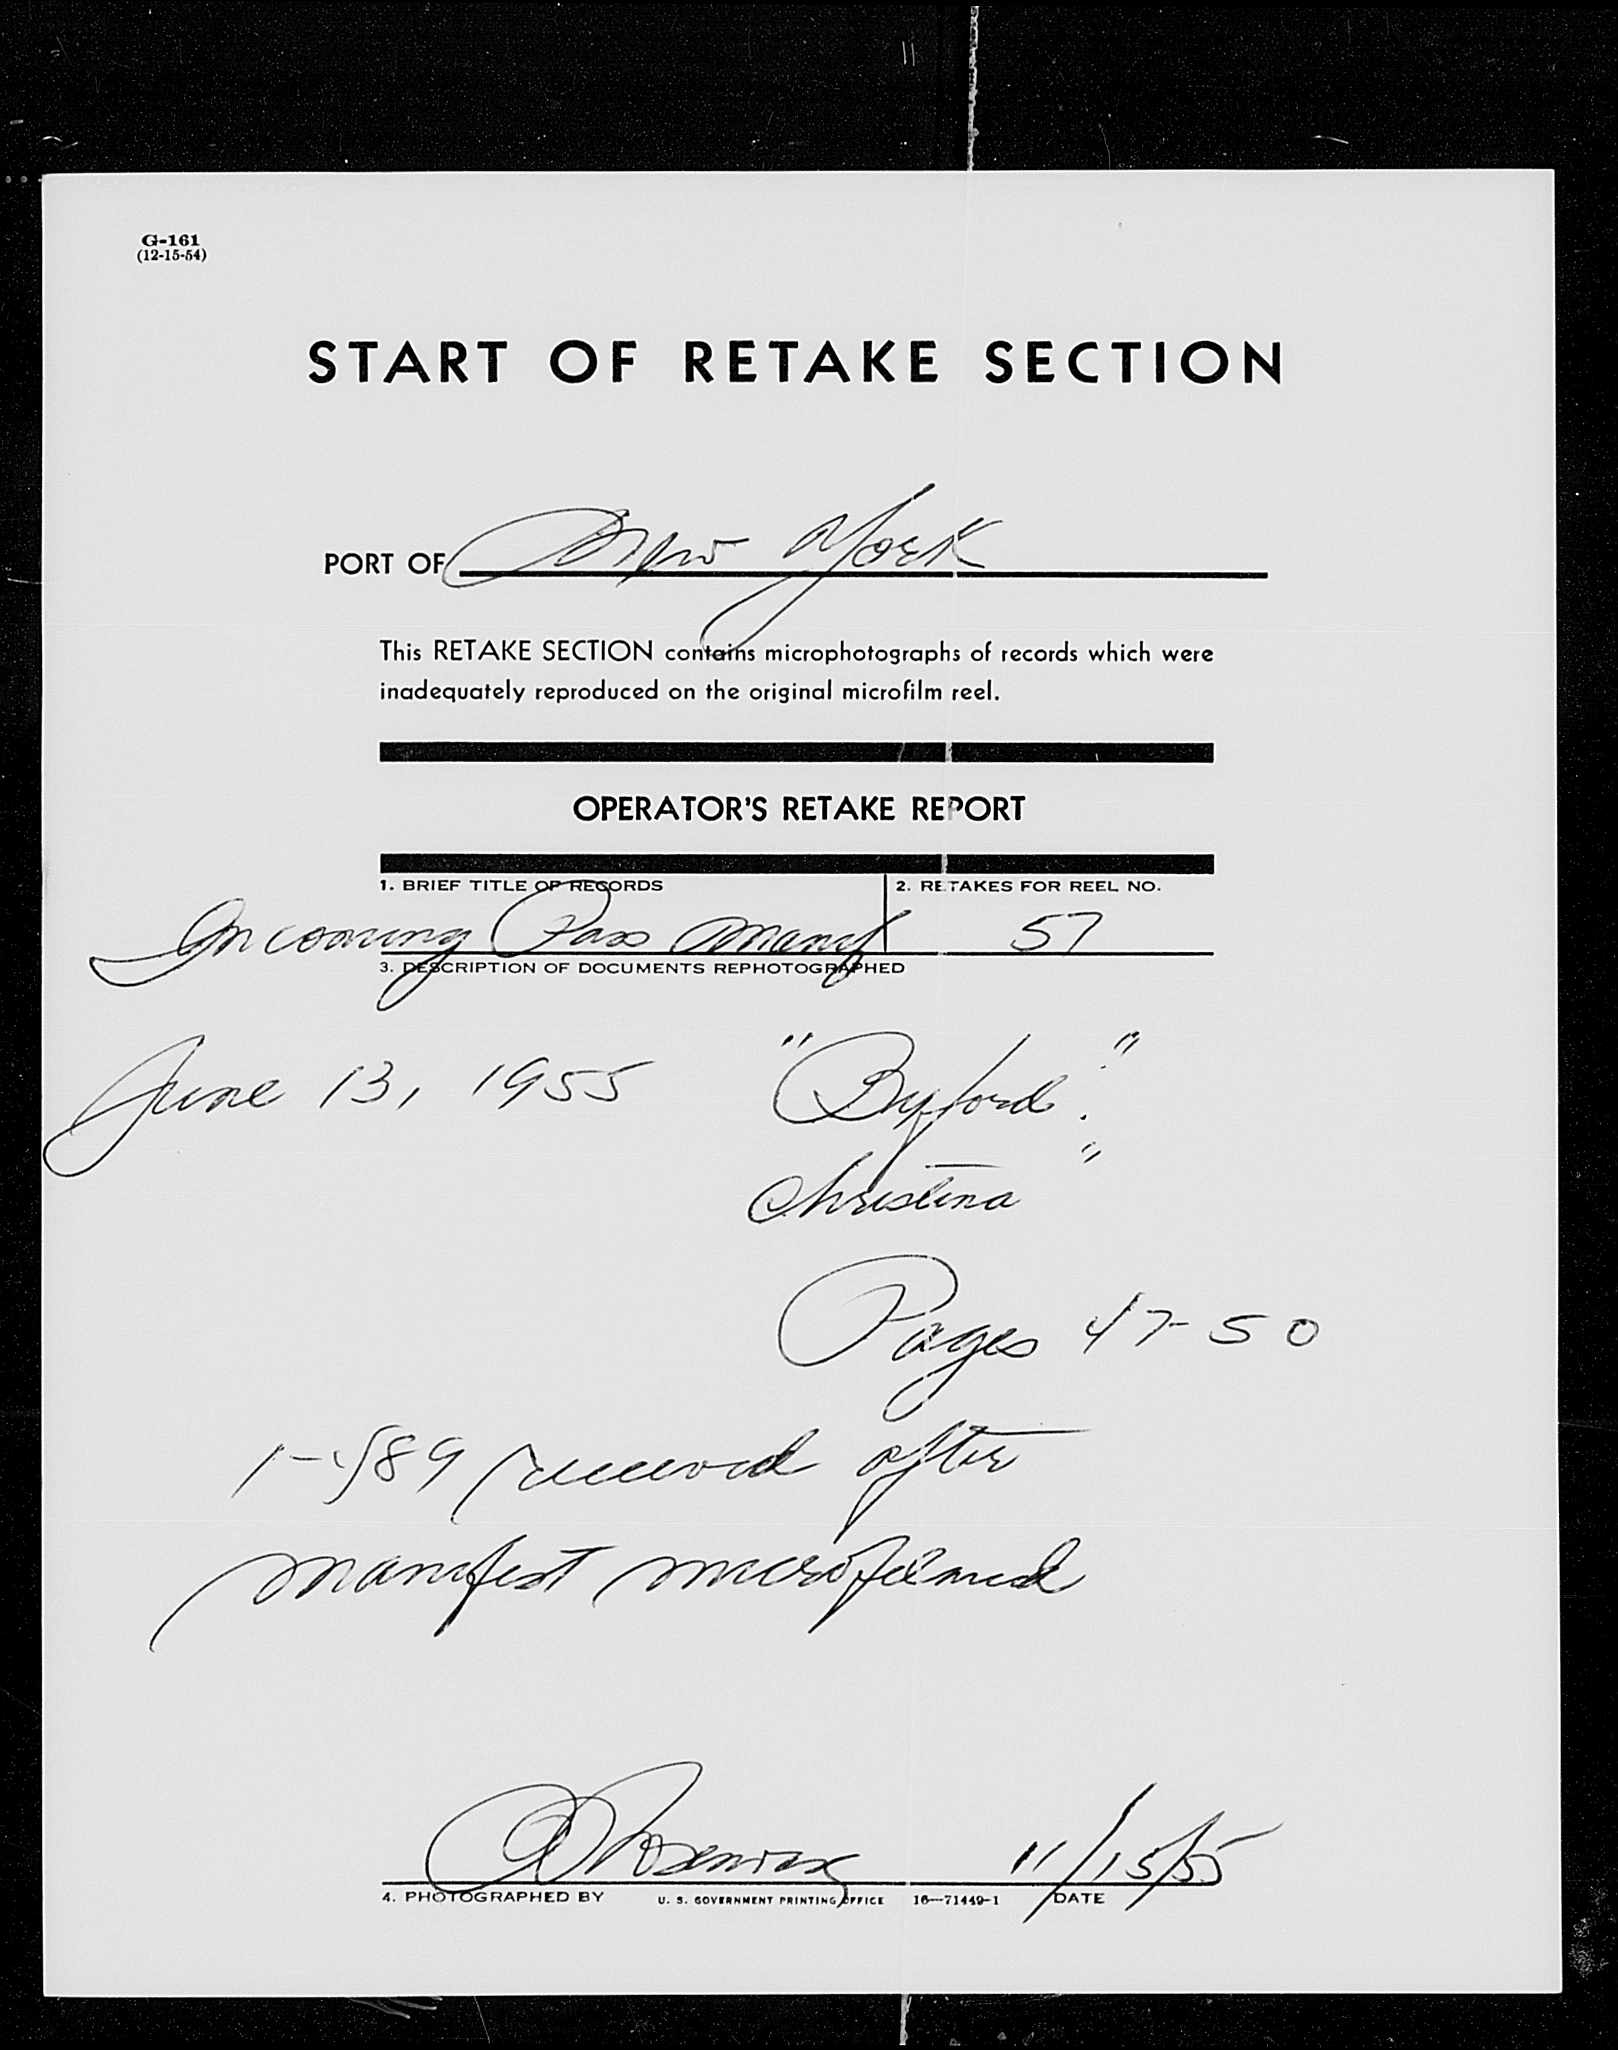 G-161
(12-15-54)
START OF RETAKE SECTION
PORT OF New York
This RETAKE SECTION contains microphotographs of records which were
inadequately reproduced on the original microfilm reel.
OPERATOR'S RETAKE REPORT
1. BRIEF TITLE OF RECORDS 2. RETAKES FOR REEL NO.
Incoming Pass Manif 57
3. DESCRIPTION OF DOCUMENTS REPHOTOGRAPHED
June 13, 1955 "Byford"
Christina"
Pages 47-50
1-489 received after
manifest microfilmed
11/15/55
4. PHOTOGRAPHED BY U. S. GOVERNMENT PRINTING OFFICE 16—71449-1 DATE